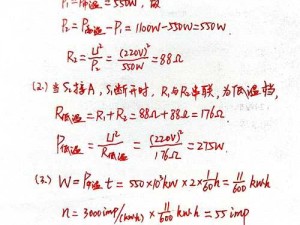 P₁=P中温=550W, 故
P₂=P高温-P₁=1100W-550W=550W.
R₂=U²/P₂=(220V)²/550W=88Ω
(2.) 当S₂接A, S₁断开时, R₁与R₂串联, 为低温挡,
R低温=R₁+R₂=88Ω+88Ω=176Ω.
P低温=U²/R低温=(220V)²/176Ω=275W.
(3.) W=P中温t=550×10⁻³kW×2×1/60h=11/600 kW·h
n=3000imp/(kW·h)×11/600 kW·h=55imp